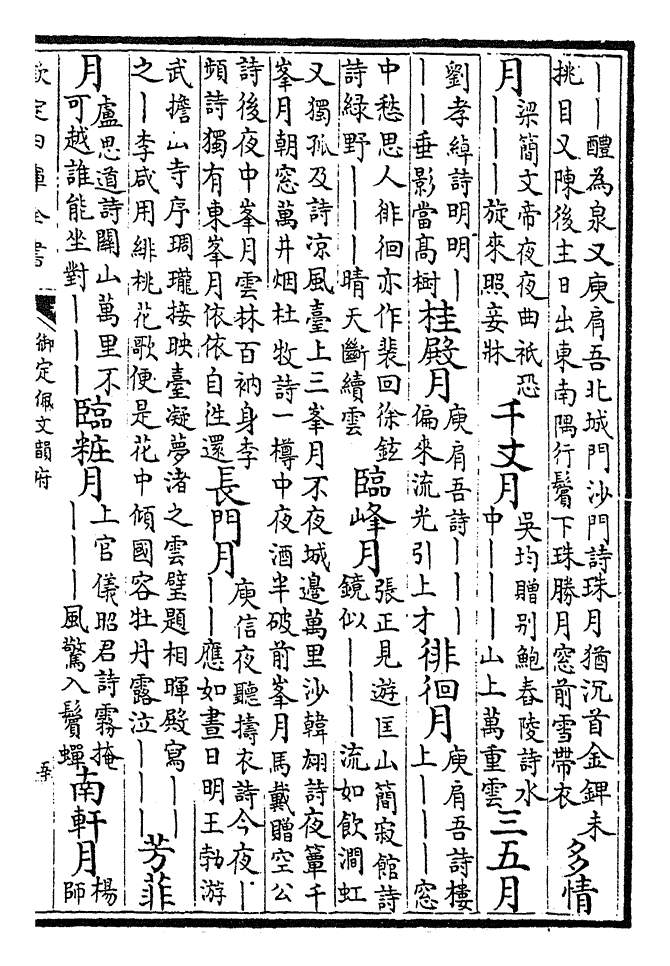 ｜｜醴為泉又庾肩吾北城門沙門詩珠月猶沉首金錍未
挑目又陳後主日出東南隅行鬢下珠勝月窓前雪帶衣
多情
月
梁簡文帝夜夜曲祇恐
｜｜｜旋來照妾牀
千丈月
吳均贈別鮑舂陵詩水
中｜｜｜山上萬重雲
三五月
劉孝綽詩明明｜
｜｜垂影當高樹
桂殿月
庾肩吾詩｜｜｜
偏來流光引上才
徘徊月
庾肩吾詩樓
上｜｜｜窓
中愁思人徘徊亦作裴回徐鉉
詩綠野｜｜｜晴天斷續雲
臨峰月
張正見遊匡山簡寂館詩
鏡似｜｜｜流如飲澗虹
又獨孤及詩凉風臺上三峯月不夜城邊萬里沙韓翃詩夜簟千
峯月朝窓萬井烟杜牧詩一樽中夜酒半破前峯月馬戴贈空公
詩後夜中峯月雲林百衲身李
頻詩獨有東峯月依依自性還
長門月
庾信夜聽擣衣詩今夜｜
｜｜應如晝日明王勃游
武擔山寺序琱瓏接映臺凝夢渚之雲璧題相暉殿寫｜｜
之｜李咸用緋桃花歌便是花中傾國容牡丹露泣｜｜｜
芳菲
月
盧思道詩關山萬里不
可越誰能坐對｜｜｜
臨粧月
上官儀昭君詩霧掩
｜｜｜風驚入鬢蟬
南軒月
楊
師
欽定四庫全書
御定佩文韻府